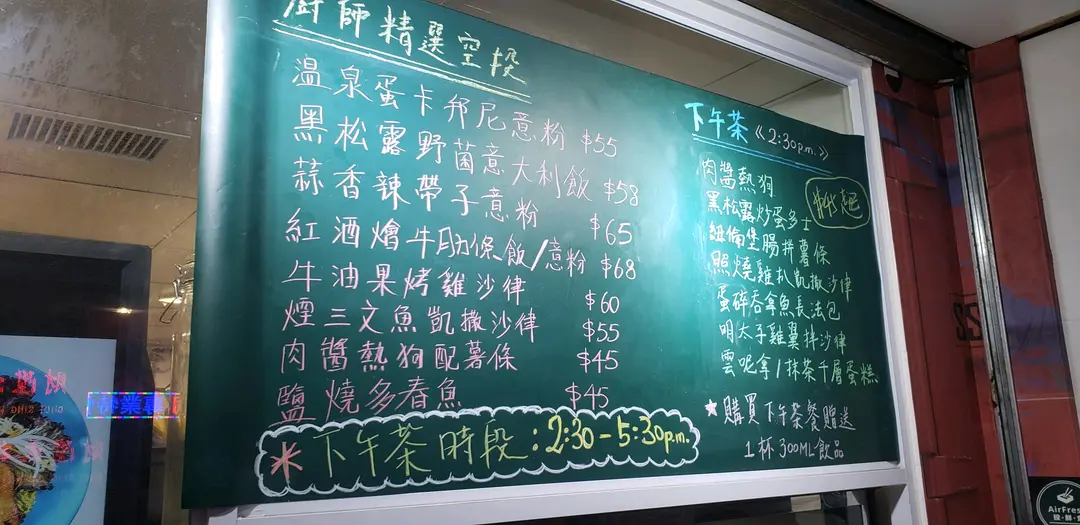 廚師精選空投
溫泉蛋卡邦尼意粉 $55
黑松露野菌意大利飯 $58
蒜香辣帶子意粉 $65
紅酒燴牛肋條飯/意粉 $68
牛油果烤雞沙律 $60
煙三文魚凱撒沙律 $55
肉醬熱狗配薯條 $45
鹽燒多春魚 $45
*下午茶時段:2:30-5:30p.m.
下午茶 《2:30p.m.》
肉醬熱狗
黑松露炒蛋多士
紐倫堡腸拼薯條
照燒雞扒凱撒沙律
蛋碎吞拿魚長法包
明太子雞翼拌沙律
雲呢拿/抹茶千層蛋糕
★購買下午茶餐贈送
1杯300ML飲品
AirFres